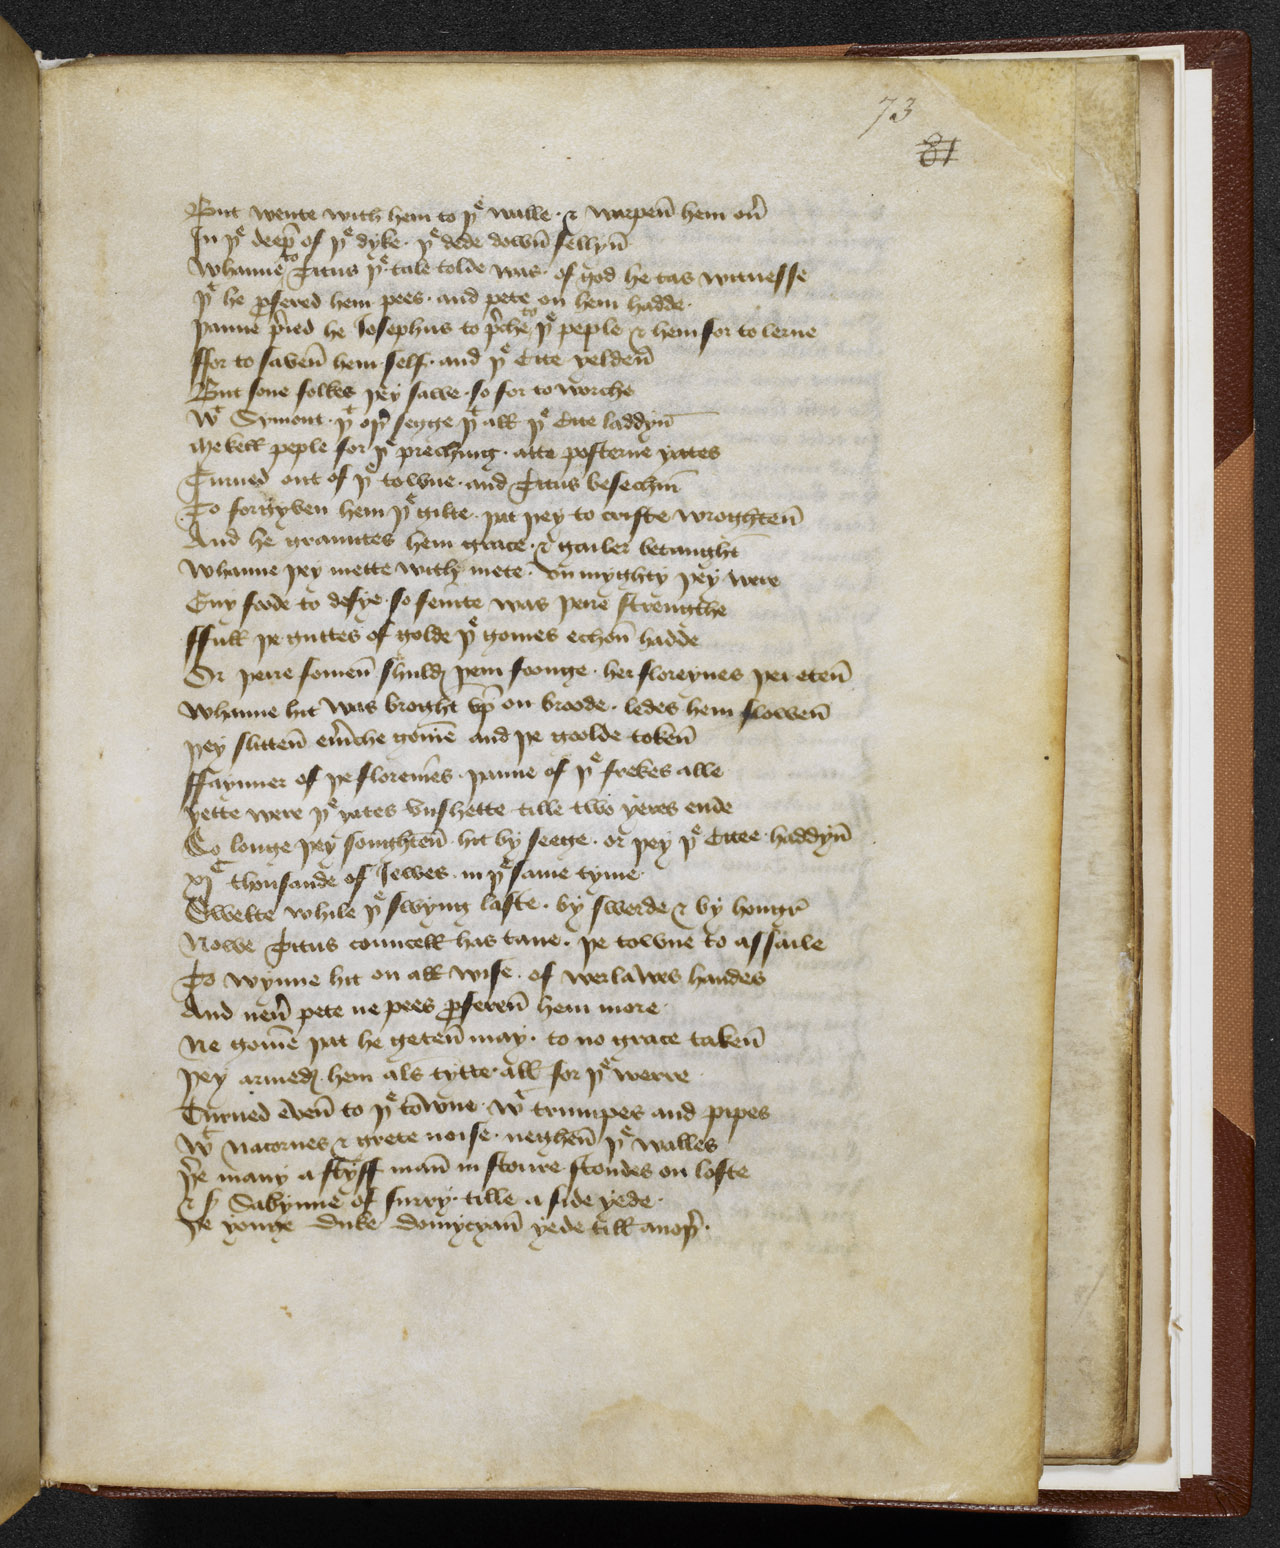 73
81
But wente with hem to þe walle · & warpen̄ hem ou̾
In þe deep̄ of þe dyke · þe dede down̄ fellyn̄
Whanne to Titus þe tale tolde was · of god he tas witnesse
þt he ꝓfered hem pees · and pete on hem hadde ·
þanne p̾ied he Iosephus to p̾che to þe peple & hem for to lerne
ffor to saven̄ hem self · and þe Cite yelden̄
But sone folkes þey sawe · so for to worche
wt Symont · þt oþ̾ segge þt all þe Cite laddyn̄
Mekell peple for þt preching · atte posterne yates
Turned out of þe towne · and Titus besechin̄
To forgyven hem þe gilte · þat þey to criste wroghten̄
And he grauntes hem grace · & gailer betaught
Whanne þey mette with mete · vnmyghty þey were
Eny foode to defye · so feinte was þeire strengthe
ffull þe guttes of golde þe gomes echon̄ hadde
Or þeire fomen̄ shuld þem foonge · her floreynes þei eten̄
Whanne hit was broght vp̄ on broode · ledes hem slowen̄
þey slitten̄ eu̾iche gom̄e and þe goolde token̄
ffaynner of þe floren̄es · þanne of þe frekes alle
yette were þe yates vnshette tille two yeres ende
So longe þey soughten̄ hit by seege · or þey þe Citee haddyn̄
xjC thousande of Iewes · in þe same tyme
Swelte while þe swyng laste · by swerde & by hongr̄
Nowe Titus councell has tane · þe towne to assaile
To wynne hit on all wise · of werlawes handes
And neu̾ pete ne pees ꝓferen̄ hem more ·
Ne gom̄e þat he geten̄ may · to no grace taken̄
þey armed hem als tytte · all for þe werre
Turned even̄ to þe towne · wt trumpes and pipes
wt Nacornes & grete noise · neghen̄ þe walles
þ̾e many a styff man̄ in stoure stondes on lofte
& s̾ Sabynne of surry · tille a side yede ·
þe yonge duke domycyan̄ yede till anoþ̾ ·